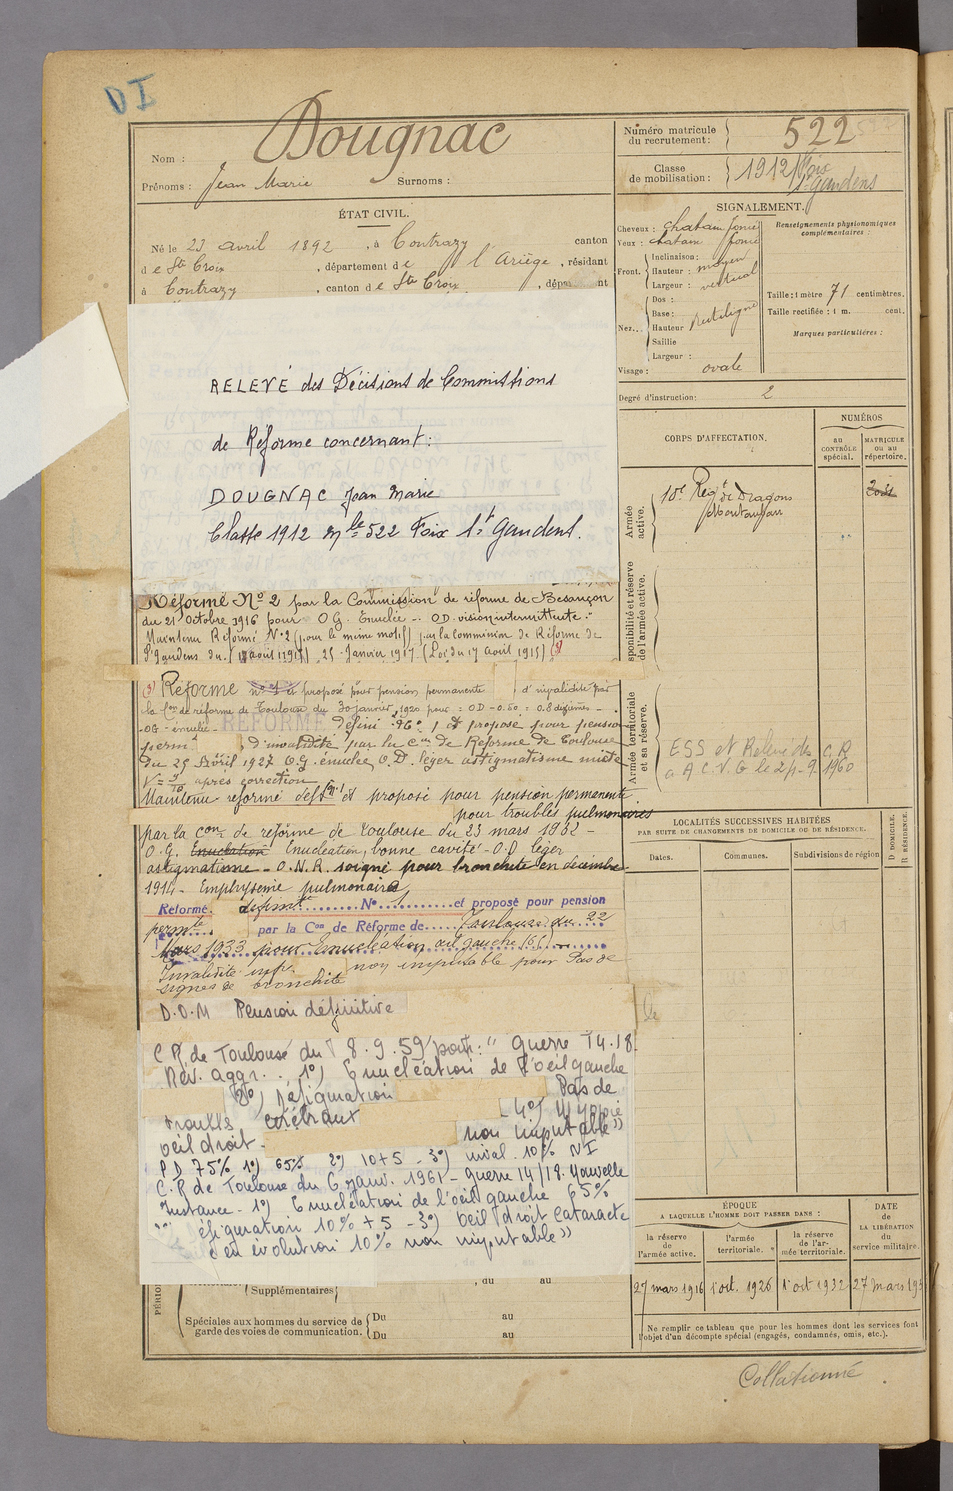 DI
Nom : Dougnac
Prénoms : Jean Marie Surnoms :
ÉTAT CIVIL.
Né le 23 avril 1892, à Contrazy canton
de Ste Croix, département de l'Ariège, résidant
à Contrazy, canton de Ste Croix, dépa
RELEVÉ des Décisions de Commissions
de Réforme concernant :
DOUGNAC Jean Marie
Classe 1912 Mle 522 Foix St Gaudens.
Réformé No 2 par la Commission de réforme de Besançon
du 21 Octobre 1916 pour OG. Enuclée -- OD. vision intermittente."
Maintenu Réformé No 2 (pour le même motif) par la commission de Réforme de
St Gaudens du 25 Janvier 1917 (Loi du 17 août 1915) (3)
(3) Réforme no 1 et proposé pour pension permanente d'invalidité par
la Con de réforme de Toulouse du 30 janvier 1920 pour = OD - 0.50 = 0.8 dixièmes -
OG = énuclée - REFORMÉ Défini No 1 et proposé pour pension
perm. d'invalidité par la Con de Réforme de Toulouse
du 25 Avril 1927 O.G. énuclée O.D. léger astigmatisme mixte
V = 9/10 après correction
Maintenu réformé déf. No 1 et proposé pour pension permanente
pour troubles pulmonaires
par la Con de réforme de Toulouse du 23 mars 1932 -
O.G. Enucleation Enucléation, bonne cavité - O.D léger
astigmatisme - O.N.R. soigné pour bronchite en décembre
1914 - Emphysème pulmonaire
Reformé. défintt No 1 et proposé pour pension
permte. par la Con de Réforme de Toulouse du 22
Mars 1933 pour Enucléation œil gauche 65%
Invalidité inf. non imputable pour Pas de
signes de bronchite
D.O.M Pension définitive
C.R. de Toulouse du 8.9.59 pour : "Guerre 14.18.
Rév. aggr. . 1°) Enucléation de l'oeil gauche
2°) Défiguration Pas de
troubles cérébraux - 4°) Myopie
oeil droit - non imputable"
P D 75% 1°) 65% 2°) 10+5 - 3°) inval. 10% NI
C.R. de Toulouse du 6 janv. 1961 - guerre 14/18. Nouvelle
Instance - 1°) Enucléation de l'oeil gauche 65%
éfiguration 10% + 5 - 3°) Oeil droit Cataracte
en évolution 10% non imputable"
, du au
Supplémentaires
Spéciales aux hommes du service de garde des voies de communication.
Du au
Du au
Numéro matricule du recrutement : 522
Classe de mobilisation : 1912 Foix St Gaudens
SIGNALEMENT.
Cheveux : chatain foncé
Yeux : chatain foncé
Front.
Inclinaison :
Hauteur : moyen
Largeur : vertical
Nez...
Dos :
Base :
Hauteur Rectiligne
Saillie
Largeur :
Visage : ovale
Renseignements physionomiques complémentaires :
Taille : 1 mètre 71 centimètres.
Taille rectifiée : 1 m. cent.
Marques particulières :
Degré d'instruction : 2
CORPS D'AFFECTATION.
NUMÉROS
au CONTRÔLE spécial.
MATRICULE ou au répertoire.
Armée active.
10e Régt de Dragons
Montauban
sponibilité et réserve de l'armée active.
Armée territoriale et sa réserve.
ESS et Relevé des C.R.
a A.C.V.G le 21-9-1960
LOCALITÉS SUCCESSIVES HABITÉES
PAR SUITE DE CHANGEMENTS DE DOMICILE OU DE RÉSIDENCE.
Dates.
Communes.
Subdivisions de région
D DOMICILE.
R RÉSIDENCE.
ÉPOQUE
A LAQUELLE L'HOMME DOIT PASSER DANS :
DATE de LA LIBÉRATION du service militaire.
la réserve de l'armée active.
l'armée territoriale.
la réserve de l'armée territoriale.
27 mars 1916
1er oct. 1926
1er oct 1932
27 mars 193
Ne remplir ce tableau que pour les hommes dont les services font
l'objet d'un décompte spécial (engagés, condamnés, omis, etc.).
Collationné